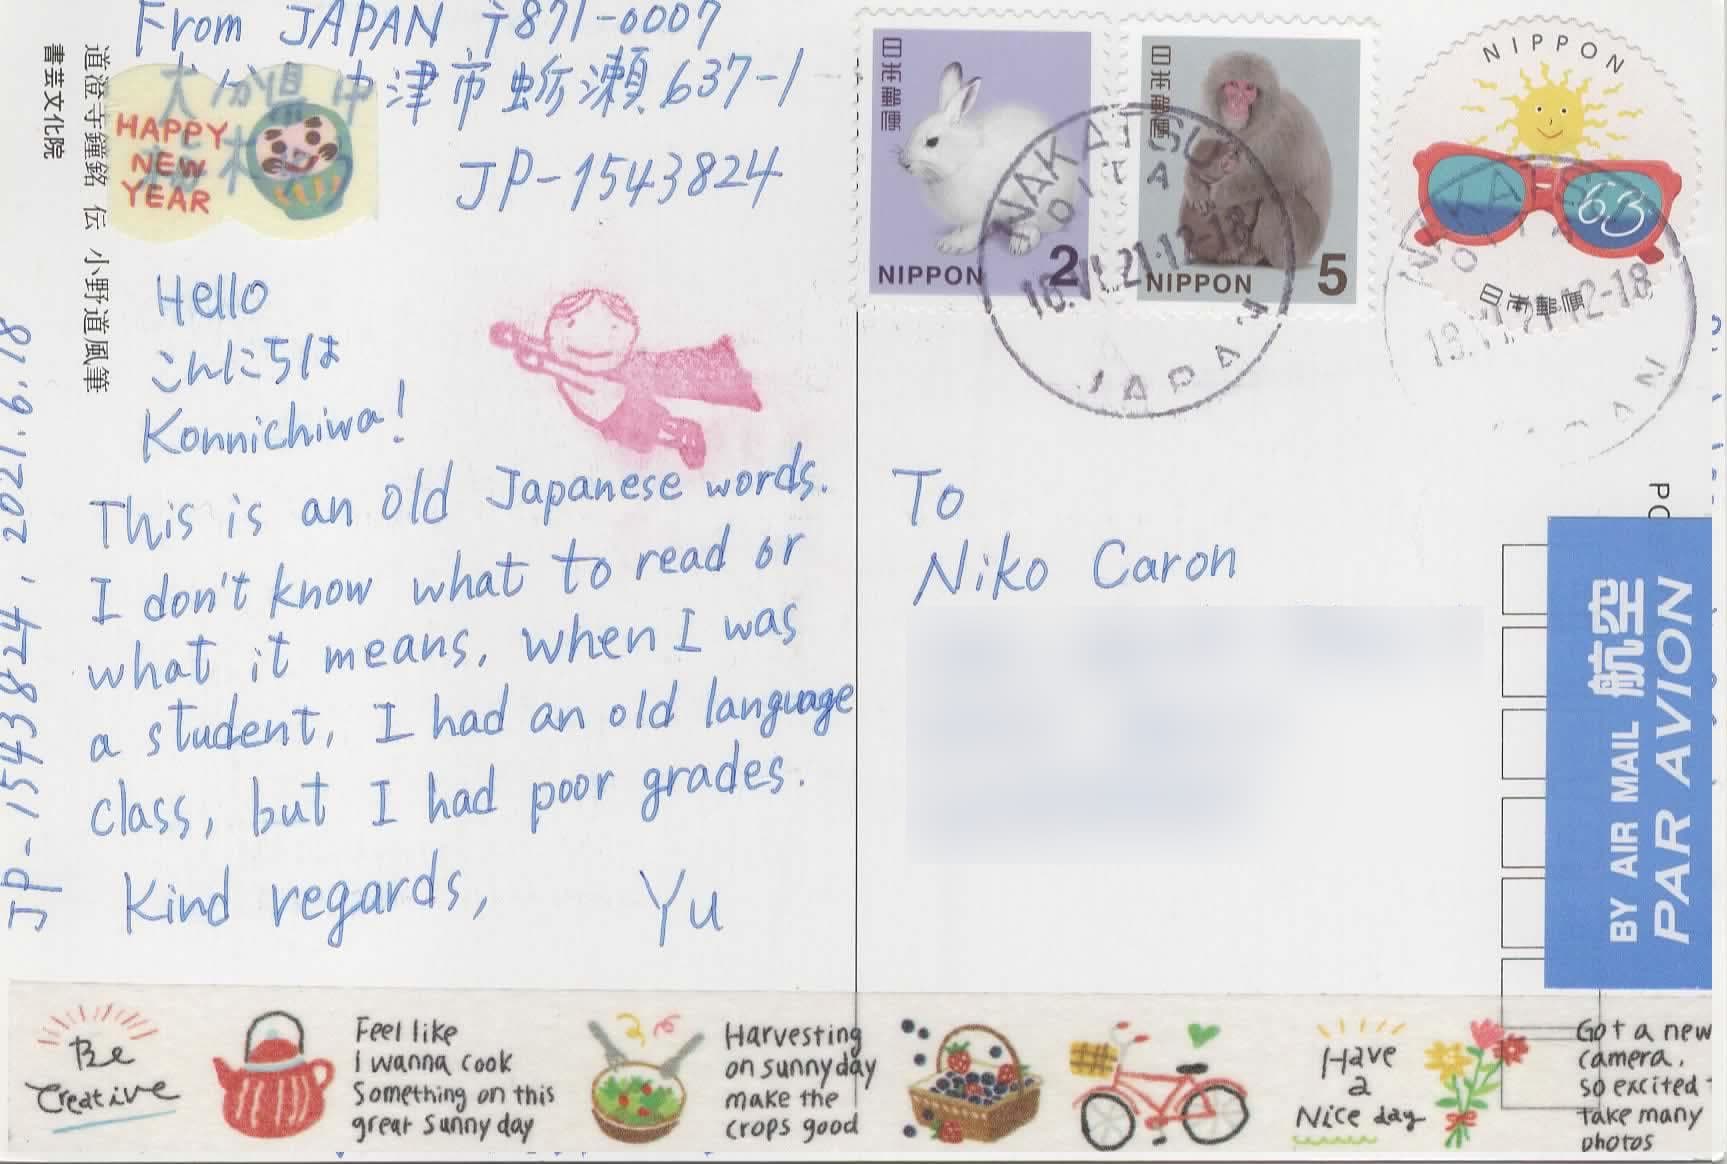 From JAPAN 〒871-0007
大分県中津市蛎瀬637-1
JP-1543824
HAPPY
NEW
YEAR
道澄寺鐘銘 伝 小野道風筆
書芸文化院
JP-1543824. 2021.6.18
Hello
こんにちは
Konnichiwa!
This is an old Japanese words.
I don't know what to read or
what it means. when I was
a student, I had an old language
class, but I had poor grades.
Kind regards, Yu
日本郵便
NIPPON 2
日本郵便
NIPPON 5
NIPPON
63
日本郵便
NAKATSU
OITA
18.VI.21.12-18
JAPAN
To
Niko Caron
PO
航空
BY AIR MAIL
PAR AVION
Be
Creative
Feel like
I wanna cook
Something on this
great sunny day
Harvesting
on sunnyday
make the
crops good
Have
a
Nice day
Got a new
camera.
so excited
take many
photos